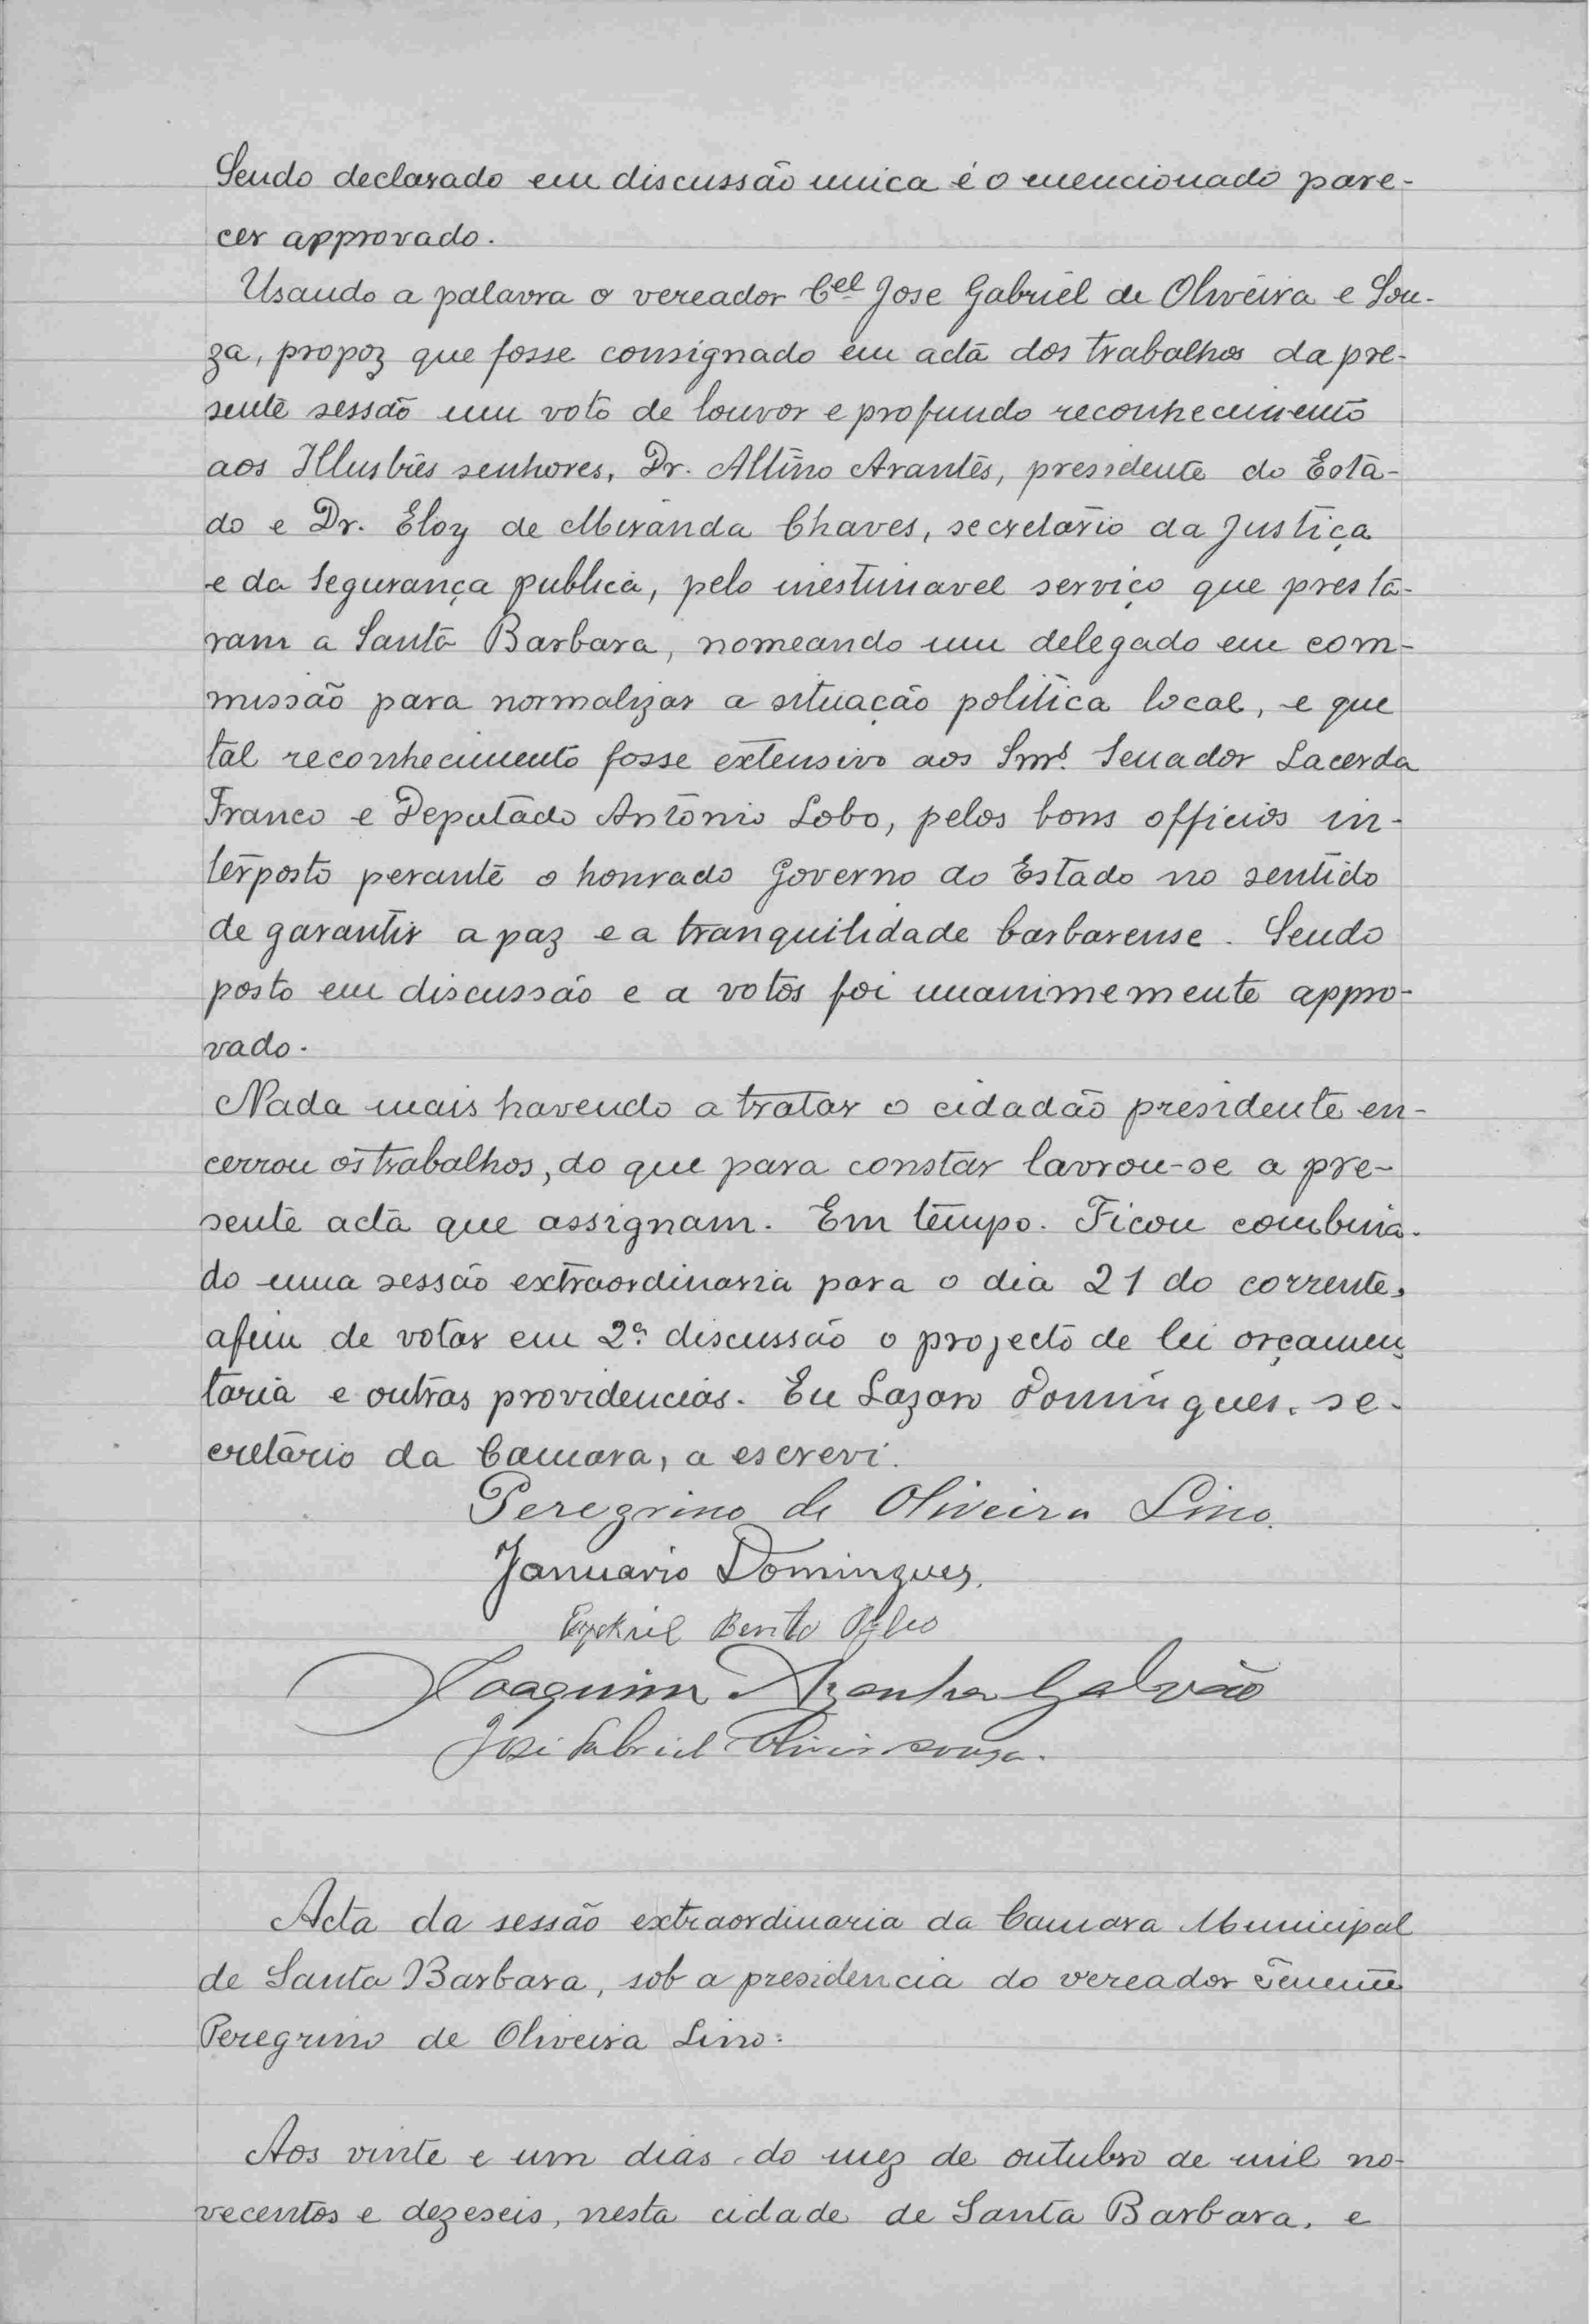 Sendo declarado em discussão unica é o mencionado pare-
cer approvado.
Usando a palavra o vereador Cel Jose Gabriel de Oliveira e Sou-
za, propoz que fosse consignado em acta dos trabalhos da pre-
sente sessão um voto de louvor e profundo reconhecimento
aos Illustres senhores, Dr. Altino Arantes, presidente do Esta-
do e Dr. Eloy de Miranda Chaves, secretario da Justiça
e da Segurança publica, pelo inestimavel serviço que presta-
ram a Santa Barbara, nomeando um delegado em com-
missão para normalizar a situação politica local, e que
tal reconhecimento fosse extensivo aos Snrs. Senador Lacerda
Franco e Deputado Antonio Lobo, pelos bons officios in-
terposto perante o honrado Governo do Estado no sentido
de garantir a paz e a tranquilidade barbarense. Sendo
posto em discussão e a votos foi unanimemente appro-
vado.
Nada mais havendo a tratar o cidadão presidente en-
cerrou os trabalhos, do que para constar lavrou-se a pre-
sente acta que assignam. Em tempo. Ficou combina-
do uma sessão extraordinaria para o dia 21 do corrente,
afim de votar em 2ª discussão o projecto de lei orçamen-
taria e outras providencias. Eu Lazaro Domingues, se-
cretario da Camara, a escrevi.
Peregrino de Oliveira Lino.
Januario Domingues.
Ezekiel Bento
Joaquim Azanha Galvão
José Gabriel Oliveira Souza.
Acta da sessão extraordinaria da Camara Municipal
de Santa Barbara, sob a presidencia do vereador Tenente
Peregrino de Oliveira Lino.
Aos vinte e um dias do mez de outubro de mil no-
vecentos e dezeseis, nesta cidade de Santa Barbara, e